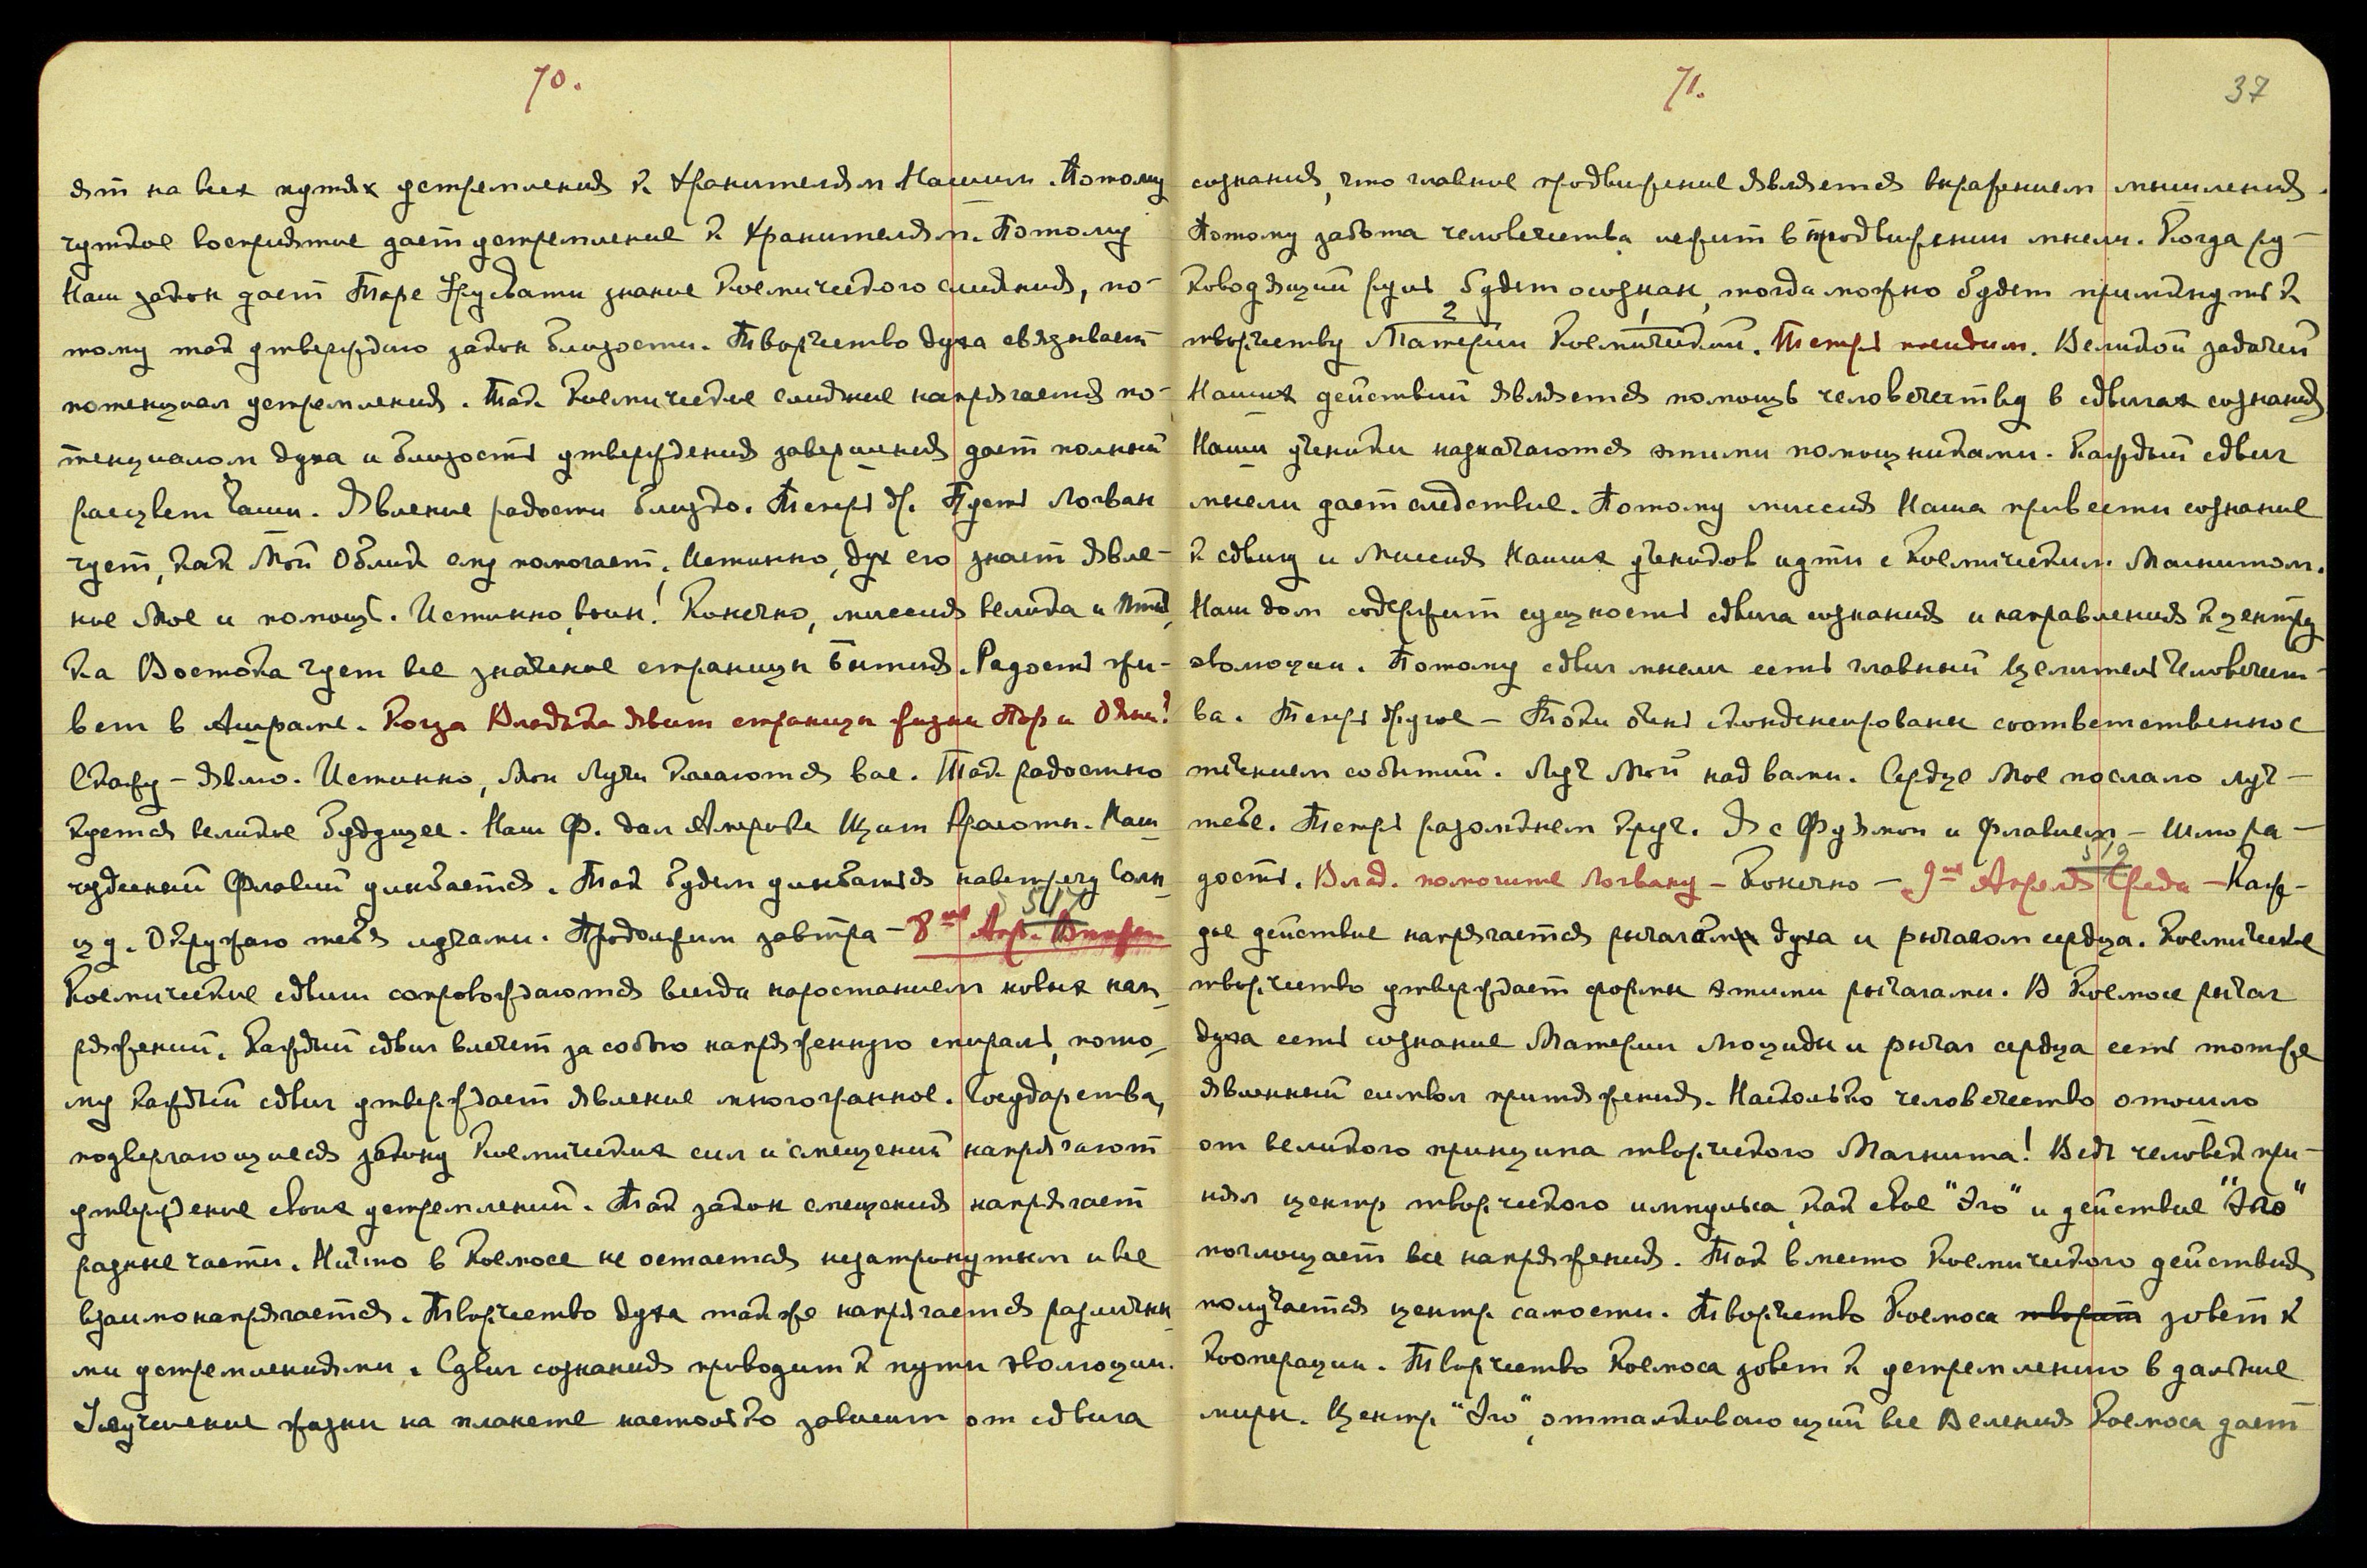 70.
ят на всех путях устремления к Хранителям Нашим. Потому
чуткое восприятие дает устремление к Хранителям. Потому
Наш закон дает Таре Урусвати знание Космического слияния, по-
тому так утверждаю закон близости. Творчество духа связывает
потенциал устремления. Так Космическое слияние напрягается по-
тенциалом духа и близость утверждения завершения дает полный
расцвет Чаши. Явление радости близко. Теперь др. Пусть Логван
чует, как Мой Облик ему помогает. Истинно, дух его знает явле-
ние Мое и помощь. Истинно, воин! Конечно, миссия велика и Пти-
ка Востока чует все значение страницы бытия. Радость жи-
вет в Ашраме. Когда Владыка явит страницы жизни Пор и Ояны?
Скажу - явлю. Истинно, Мои Лучи касаются вас. Так радостно
куется великое будущее. Наш Ф. дал Амриде Щит Красоты. Наш
чудесный Флавий улыбается. Так будем улыбаться навстречу Солн-
цу. Окружаю тебя лучами. Продолжим завтра - 8ое Апр. Вторн
547
Космические сдвиги сопровождаются всегда наростанием новых нап-
ряжений. Каждый сдвиг влечет за собою напряженную спираль, пото-
му каждый сдвиг утверждает явление многогранное. Государства,
подвергающиеся закону Космических сил и смещений напрягают
утверждение своих устремлений. Так закон смещения напрягает
разные части. Ничто в Космосе не остается незатронутым и все
взаимонапрягается. Творчество духа так же напрягается различны-
ми устремлениями. Сдвиг сознания приводит к пути эволюции.
Улучшение жизни на планете настолько зависит от сдвига
71.
37
сознания, что главное продвижение является выражением мышления.
Потому забота человечества лежит в продвижении мысли. Когда ру-
ководящий руль будет осознан, тогда можно будет примкнуть к
творчеству Материи Космической. Теперь посидим. Великой задачей
2 1
Наших действий является помощь человечеству в сдвигах сознания
Наши ученики назначаются этими помощниками. Каждый сдвиг
мысли дает следствие. Потому миссия Наша привести сознание
к сдвигу и Миссия Наших учеников идти с Космическим Магнитом.
Наш дом содержит сущность сдвига сознания и направления к центру
эволюции. Потому сдвиг мысли есть главный целитель Человечест-
ва. Теперь другое - Токи очень сконденсированы соответственно с
течением событий. Луч Мой над вами. Сердце Мое послало луч -
тебе. Теперь разомкнем круг. Я с Фуямой и Флавием - Шлю ра-
дость. Влад. помогите Логвану - Конечно - 9ое Апреля Среда - Каж-
дое действие напрягается рычагом духа и рычагом сердца. Космическое
творчество утверждает формы этими рычагами. В Космосе рычаг
духа есть сознание Материи Люциды и рычаг сердца есть тот же
явленный символ притяжения. Насколько человечество отошло
от великого принципа творческого Магнита! Ведь человек при-
нял центр творческого импульса, как свое "Эго" и действие "Эго"
поглощает все напряжения. Так вместо Космического действия
получается центр самости. Творчество Космоса творит зовет к
Кооперации. Творчество Космоса зовет к устремлению в дальние
миры. Центр "Эго", отталкивающий все Веления Космоса дает